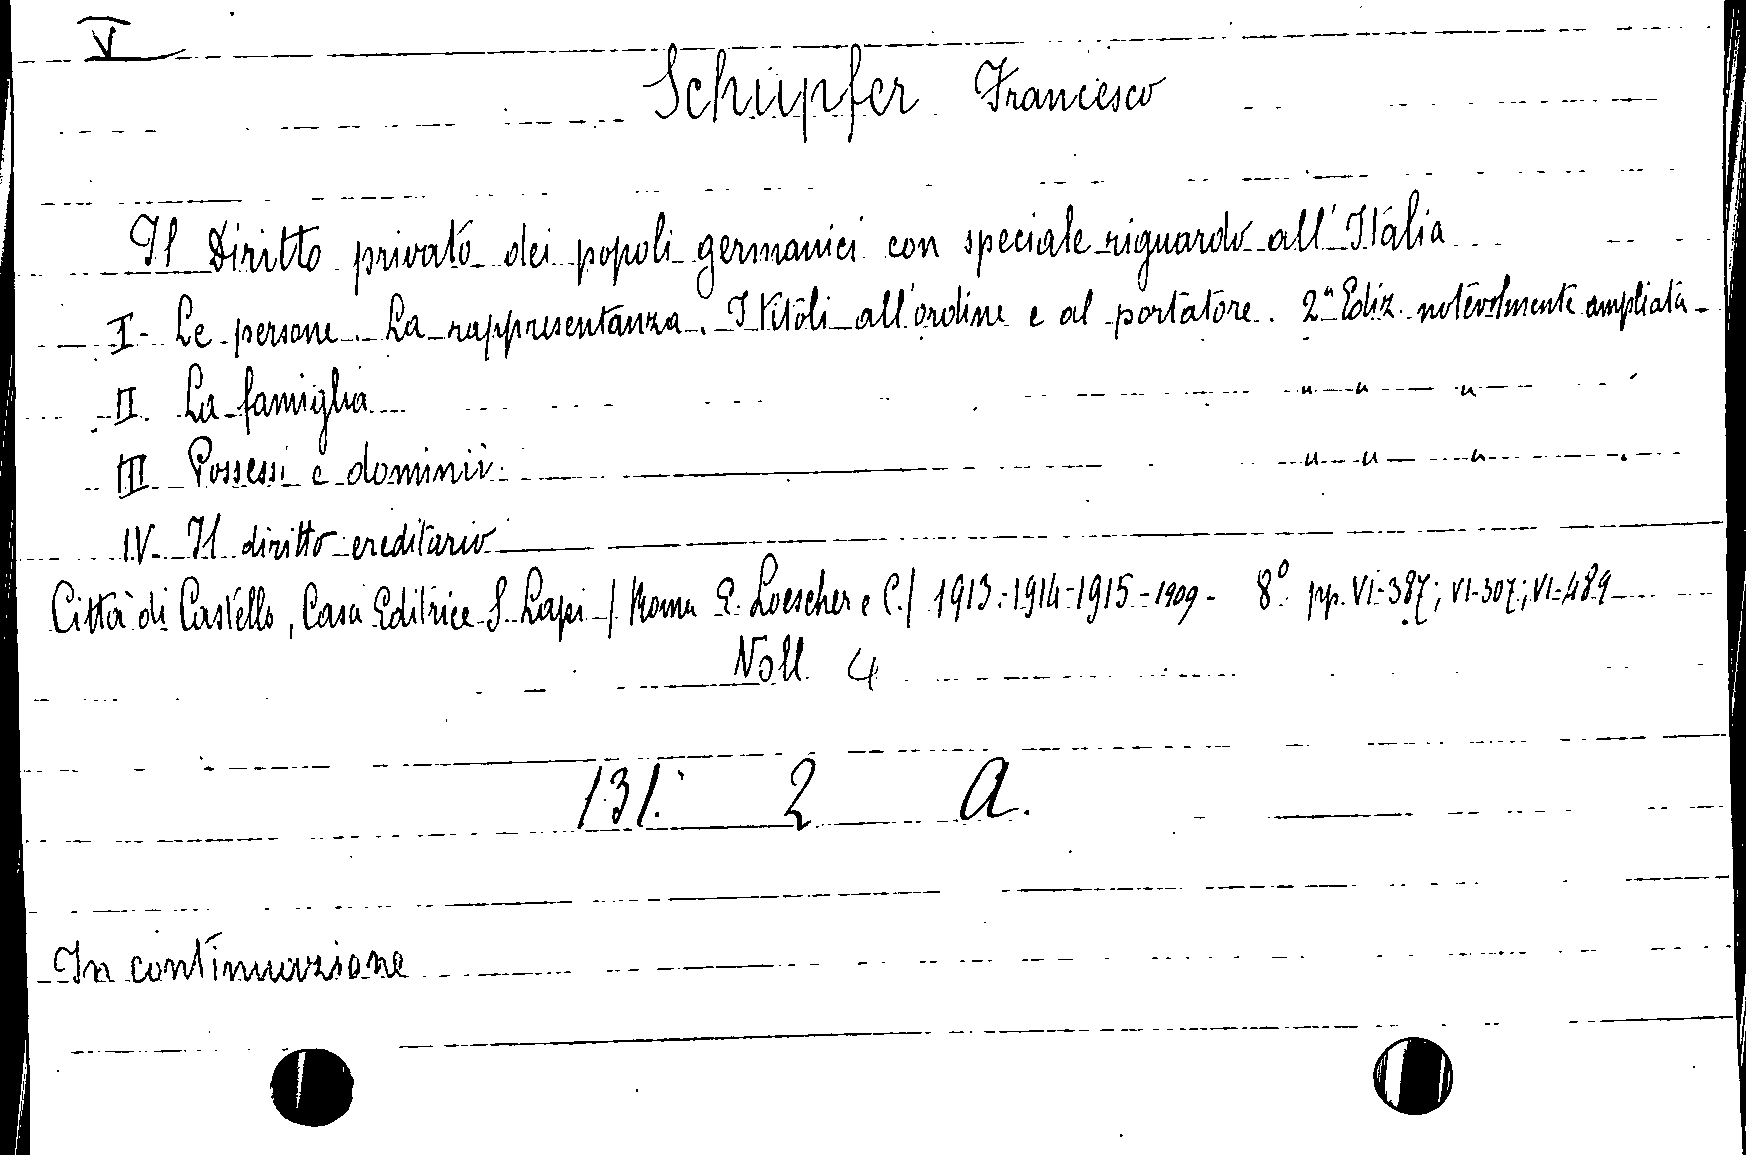 V
Schupfer Francesco
Il Diritto privato dei popoli germanici con speciale riguardo all'Italia
I - Le persone. La rappresentanza. I titoli all'ordine e al portatore. 2ª Ediz. notevolmente ampliata -
II. La famiglia " " "
III Possessi e dominii " " "
IV. Il diritto ereditario
Città di Castello, Casa Editrice S. Lapi / Roma E. Loescher e C./ 1913-1914-1915-1909- 8° pp. VI-387; VI-307; VI-489
Voll 4
131. 2 A.
In continuazione